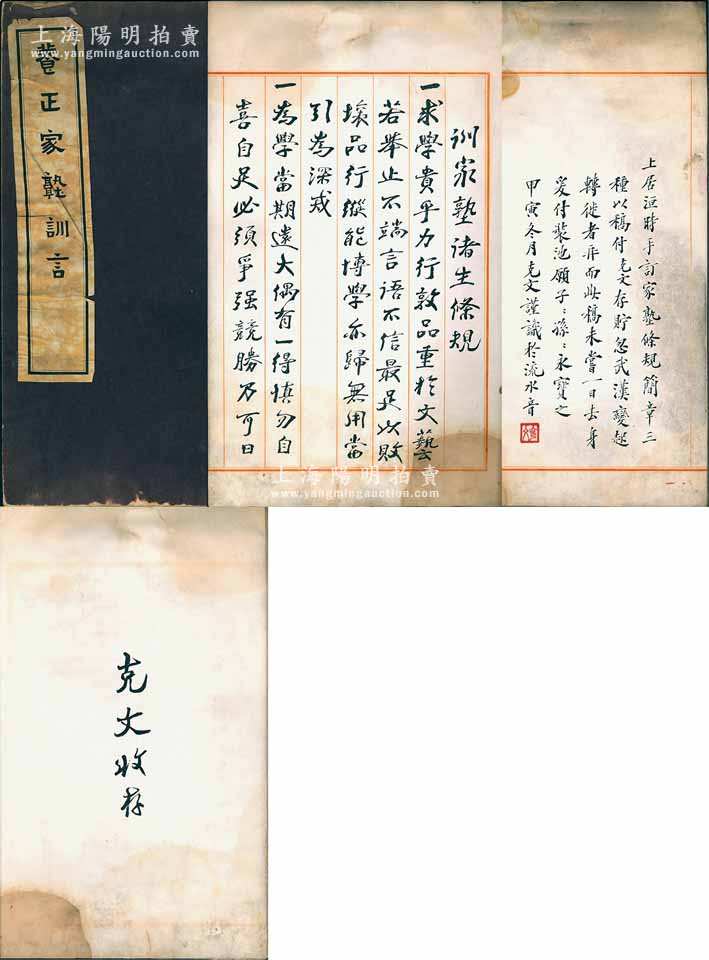 上海陽明拍賣
www.yangmingauction.com
正家塾訓言
訓家塾諸生條規
一求學貴乎力行敦品重於文藝
若舉止不端言語不信最足以敗
壞品行縱能博學亦歸無用當
引為深戒
一為學當期遠大偶有一得慎勿自
喜自足必須爭强競勝乃可日
上居洹時手訂家塾條規簡章三
種以稿付克文存貯忽武漢變起
轉徙者再而此稿未嘗一日去身
爰付裝池願子〻孫〻永寶之
甲寅冬月克文謹識於流水音
一
上海陽明拍賣
www.yangmingauction.com
克文收存